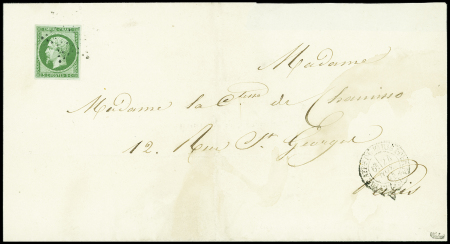 Madame
Madame la C.tesse de
12. Rue St. George
Paris